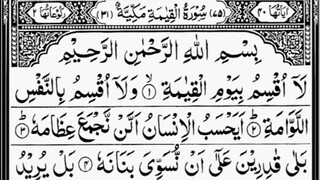 اٰیَاتُهَا ٤٠ (٧٥) سُوْرَةُ الْقِیٰمَةِ مَكِّیَّةٌ (٣١) رُكُوْعَاتُهَا ٢
بِسْمِ اللّٰهِ الرَّحْمٰنِ الرَّحِیْمِ
لَاۤ اُقْسِمُ بِیَوْمِ الْقِیٰمَةِ ۙ﴿١﴾ وَلَاۤ اُقْسِمُ بِالنَّفْسِ
اللَّوَّامَةِ ﴿٢﴾ اَیَحْسَبُ الْاِنْسَانُ اَلَّنْ نَّجْمَعَ عِظَامَهٗ ﴿٣﴾
بَلٰی قٰدِرِیْنَ عَلٰۤی اَنْ نُّسَوِّیَ بَنَانَهٗ ﴿٤﴾ بَلْ یُرِیْدُ